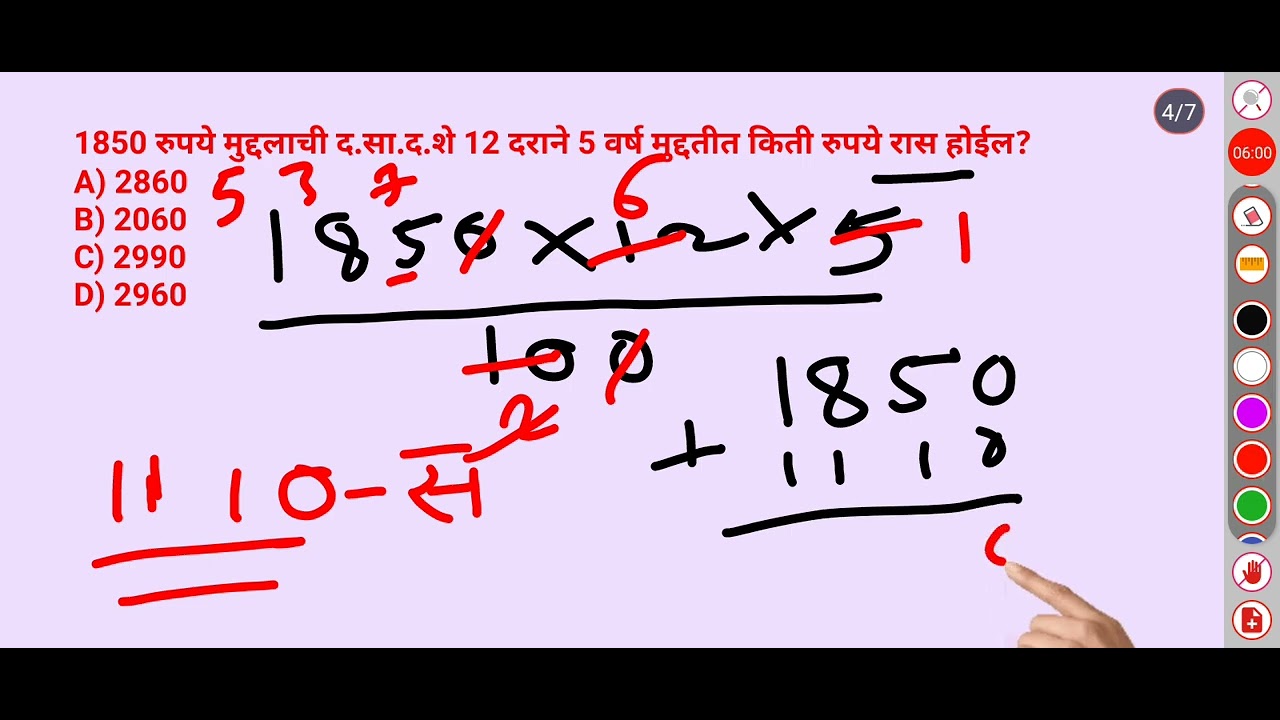 4/7
06:00
1850 रुपये मुद्दलाची द.सा.द.शे 12 दराने 5 वर्ष मुद्दतीत किती रुपये रास होईल?
A) 2860
B) 2060
C) 2990
D) 2960
5 3 7 6
1850 × 12 × 5 1
100
2
1850
+ 1110
1110 - स
0